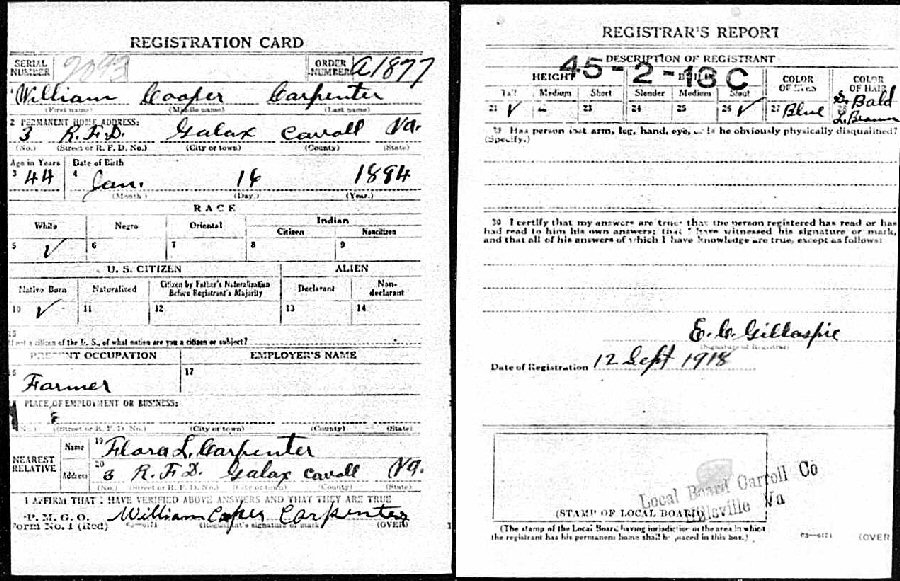 REGISTRATION CARD
SERIAL NUMBER 2093 ORDER NUMBER A1877
1 William Cooper Carpenter
(First name) (Middle name) (Last name)
2 PERMANENT HOME ADDRESS:
3 R.F.D. Galax Carroll Va.
(No.) (Street or R. F. D. No.) (City or town) (County) (State)
Age in Years Date of Birth
3 44 4 Jan. 14 1884
(Month) (Day) (Year)
RACE
White Negro Oriental Indian
Citizen Noncitizen
5 ✓ 6 7 8 9
U. S. CITIZEN ALIEN
Native Born Naturalized Citizen by Father's Naturalization Before Registrant's Majority Declarant Non-declarant
10 ✓ 11 12 13 14
15
If not a citizen of the U. S., of what nation are you a citizen or subject?
PRESENT OCCUPATION EMPLOYER'S NAME
16 Farmer 17
PLACE OF EMPLOYMENT OR BUSINESS:
(No.) (Street or R. F. D. No.) (City or town) (County) (State)
NEAREST RELATIVE
Name 19 Flora L. Carpenter
Address 20 3 R.F.D. Galax Caroll Va.
(No.) (Street or R. F. D. No.) (City or town) (County) (State)
I AFFIRM THAT I HAVE VERIFIED ABOVE ANSWERS AND THAT THEY ARE TRUE
P. M. G. O. William Caper Carpenter
Form No. 1 (Red) (Registrant's signature or mark) (OVER)
REGISTRAR'S REPORT
45-2-18 C
DESCRIPTION OF REGISTRANT
HEIGHT BUILD COLOR OF EYES COLOR OF HAIR
Tall Medium Short Slender Medium Stout
21 ✓ 22 23 24 25 26 ✓ 27 Blue 28 S. Bald L. Brown
29 Has person lost arm, leg, hand, eye, or is he obviously physically disqualified?
(Specify.)
30 I certify that my answers are true; that the person registered has read or has
had read to him his own answers; that I have witnessed his signature or mark,
and that all of his answers of which I have knowledge are true, except as follows:
E. C. Gillaspie
(Signature of Registrar)
Date of Registration 12 Sept 1918
Local Board Carroll Co
Hillsville Va
(STAMP OF LOCAL BOARD)
(The stamp of the Local Board having jurisdiction of the area in which
the registrant has his permanent home shall be placed in this box.)
03—6171 (OVER)